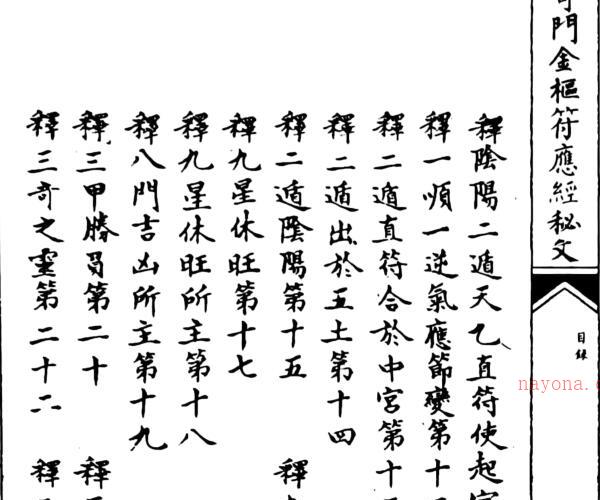 門金樞符應經秘文
目錄
釋陰陽二遁天乙直符使起宮
釋一順一逆氣應節變第十
釋二遁直符合於中宮第十
釋二遁出於五土第十四
釋二遁陰陽第十五
釋
釋九星休旺第十七
釋九星休旺所主第十八
釋八門吉凶所主第十九
釋三甲勝負第二十
釋
釋三奇之靈第二十二
釋
nayona.